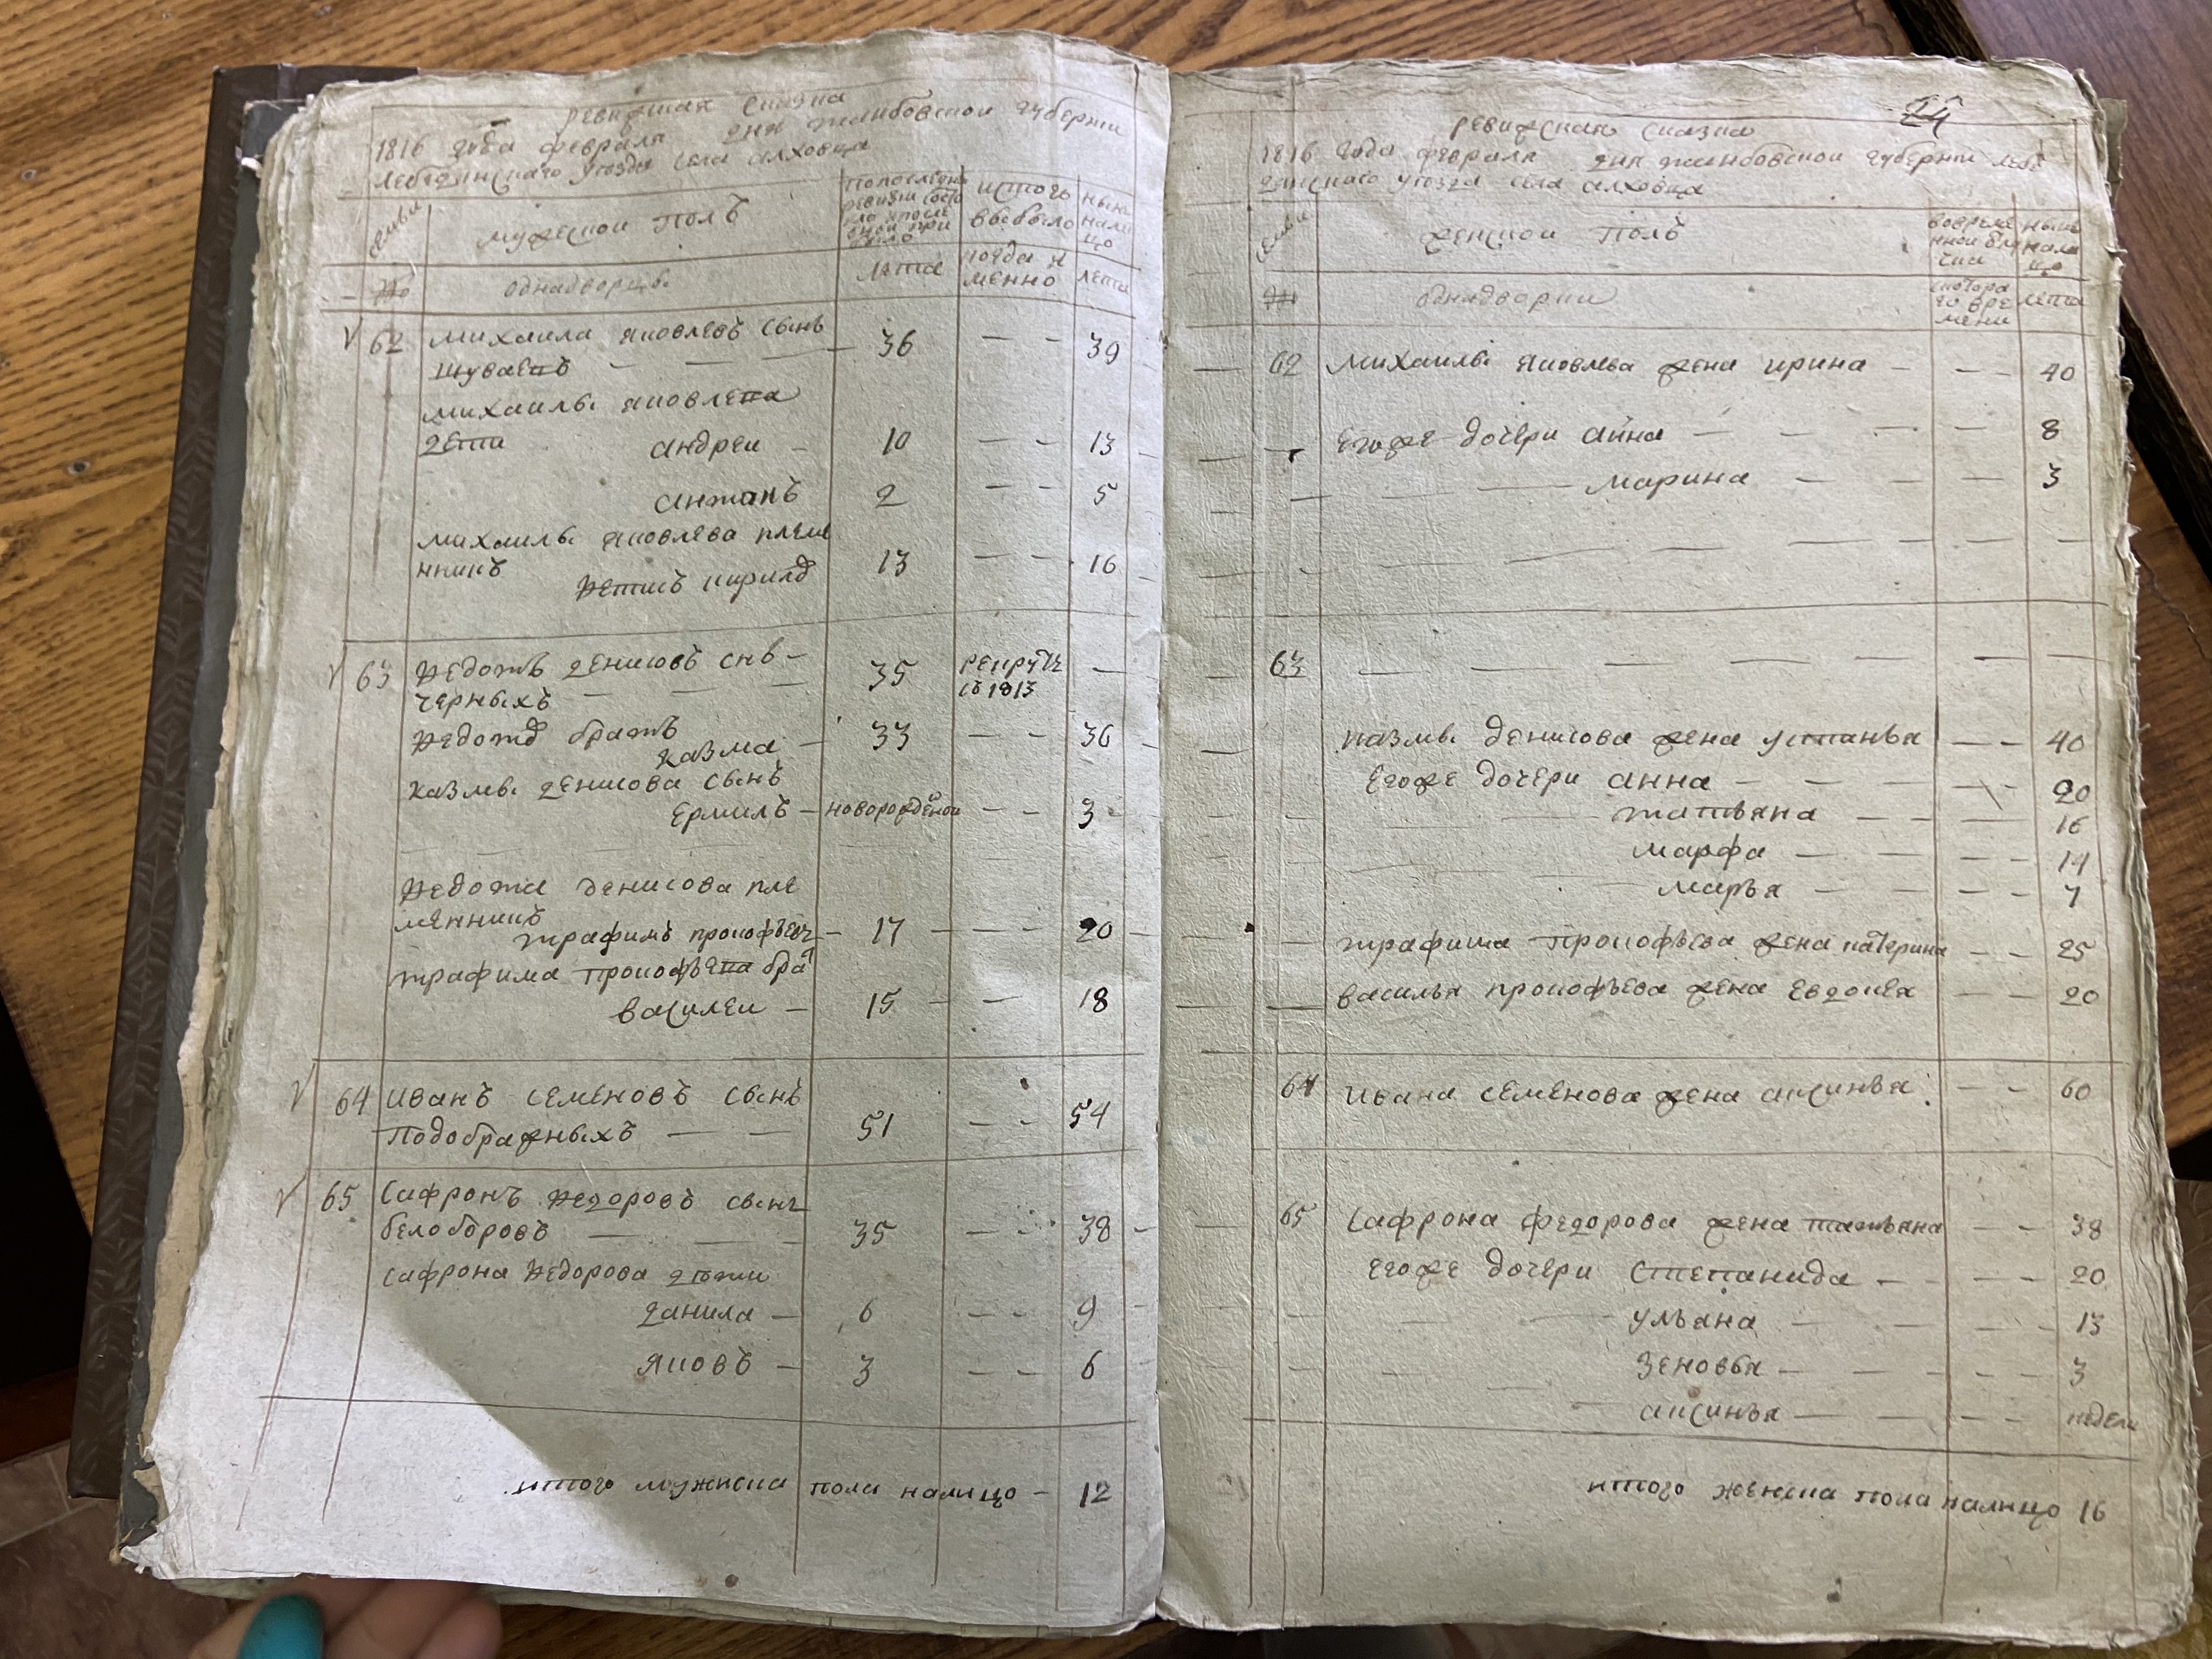 ревижская сказка
1816 года февраля дня танбовской губерни
лебедянскаго уезда села алховца
семьи
мужескои полъ
попоследне
ревизи состо
яло ипосле
онои при
было
исъ того
выбыло
ныне
нали
цо
№
однадворцы
лета
когда и
менно
лета
62 михаила яковлевъ сынъ
шуваевъ — — — 36 — — 39
михаилы яковлева
дети андреи — 10 — — 13
антанъ 2 — — 5
михаилы яковлева племе
нникъ 13 — — 16
кирила
63 Ѳедотъ денисовъ снъ — 35 рекрутъ —
черныхъ — — — въ 1813
Ѳедота братъ
казма — 33 36
казмы денисова сынъ
ермилъ — новорожденои — — 3
Ѳедота денисова пле
менникъ
трафимъ прокофьевъ — 17 — — 20
трафима прокофьева брат
василеи — 15 — 18
64 иванъ семеновъ сынъ
подображныхъ — — 51 — — 54
65 сафронъ Ѳедоровъ сынъ
белоборовъ — — 35 — — 38
сафрона Ѳедорова дети
данила — 6 — — 9
яковъ — 3 — — 6
итого мужеска пола налицо — 12
24
ревижская сказка
1816 года февраля дня танбовской губерни лебе
дянскаго уезда села алховца
семьи
женскои полъ
вовреме
ннои отлу
чки
ныне
нали
цо
№
однадворки
скотора
го вре
мени
лета
62 михаилы яковлева жена ирина — — — 40
егоже дочери анна — — — — 8
— марина — — — 3
63 — — — — — — —
казмы денисова жена устинья — — 40
егоже дочери анна — — — — 20
татьяна — — — 16
марфа — — — — 14
марья — — — — 7
трафима прокофьева жена катерина — — 25
василья прокофьева жена евдокея — — 20
64 ивана семенова жена аксинья — — 60
65 сафрона федорова жена татьяна — — 38
егоже дочери степанида — — — — 20
ульяна — — — — 13
зеновья — — — — 3
аксинья — — — — недели
итого женска пола налицо 16